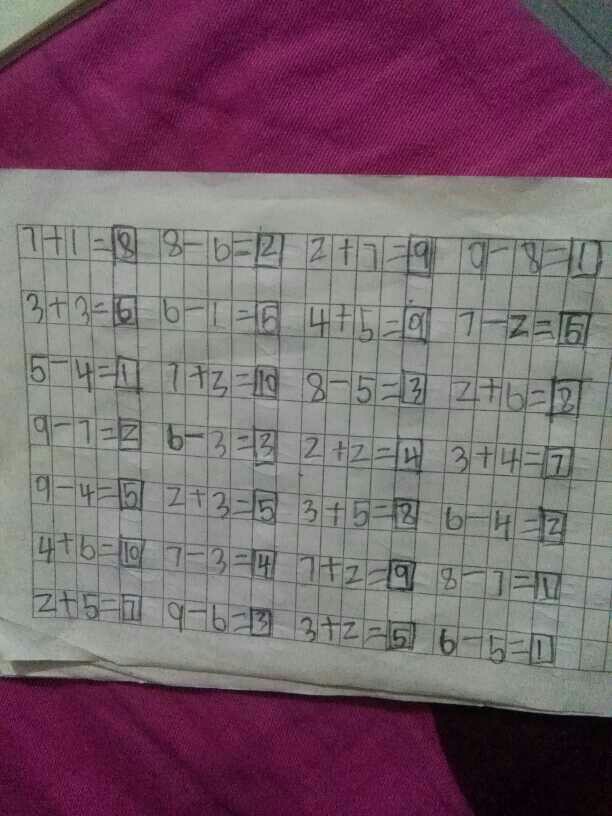 7+1=8 8-6=2 2+7=9 9-8=1
3+3=6 6-1=5 4+5=9 7-2=5
5-4=1 7+3=10 8-5=3 2+6=8
9-7=2 6-3=3 2+2=4 3+4=7
9-4=5 2+3=5 3+5=8 6-4=2
4+6=10 7-3=4 7+2=9 8-7=1
2+5=7 9-6=3 3+2=5 6-5=1